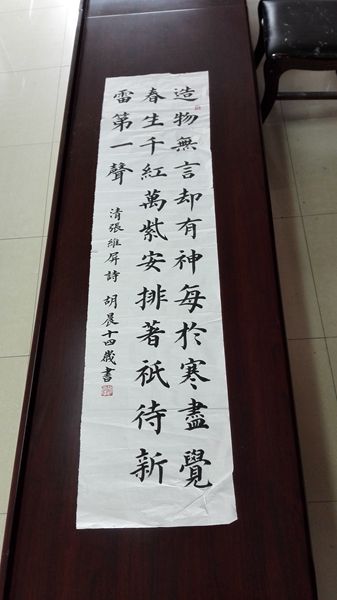 造物無言却有神每於寒盡覺
春生千紅萬紫安排著祇待新
雷第一聲
清張維屏詩 胡晨十四歲書